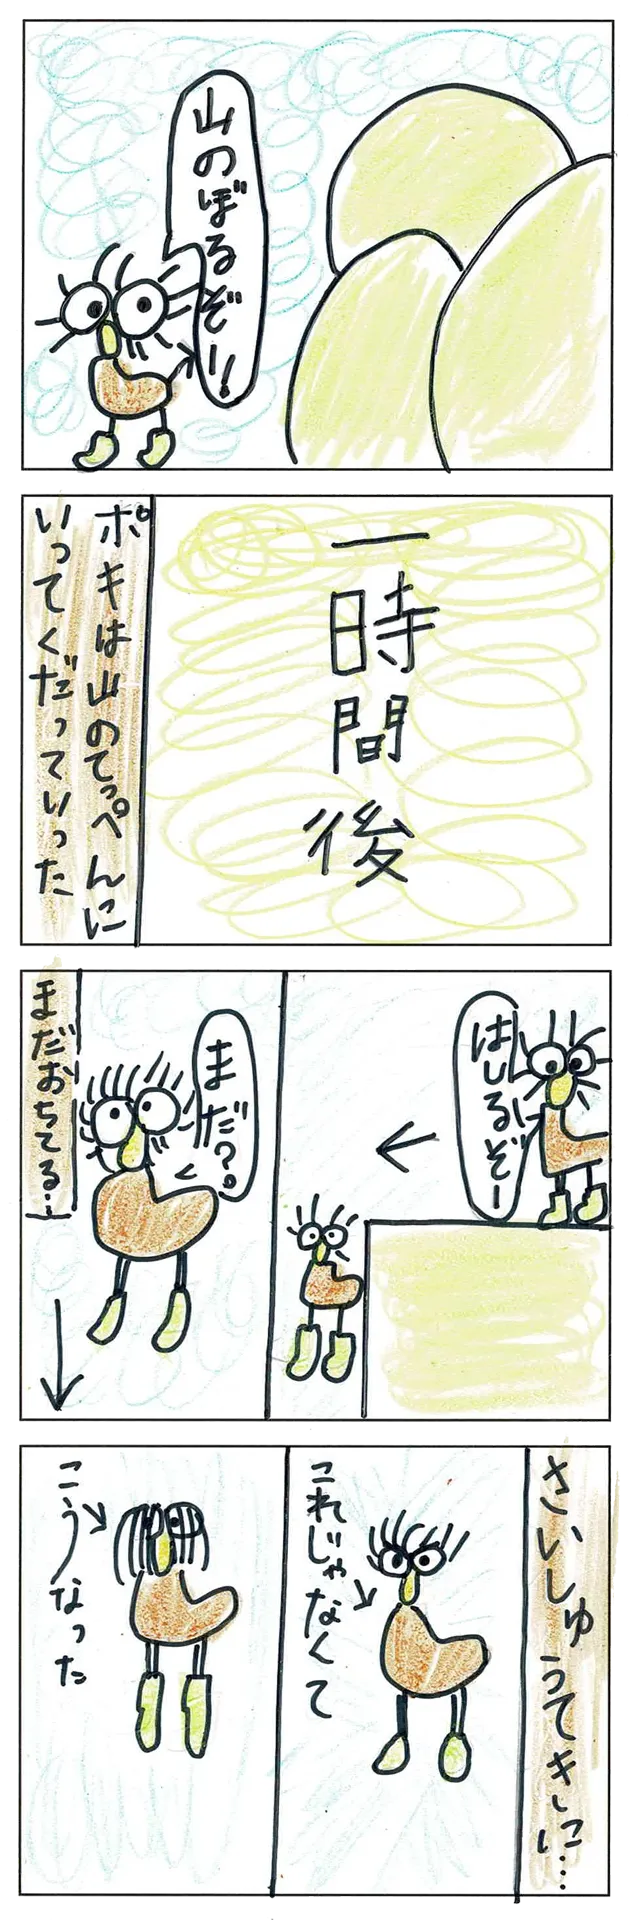 山のぼるぞー！
一時間後
ポキは山のてっぺんに
いってくだっていった
はしるぞー
まだ？。
まだおちてる…
さいしゅうてきに…
これじゃなくて
こうなった